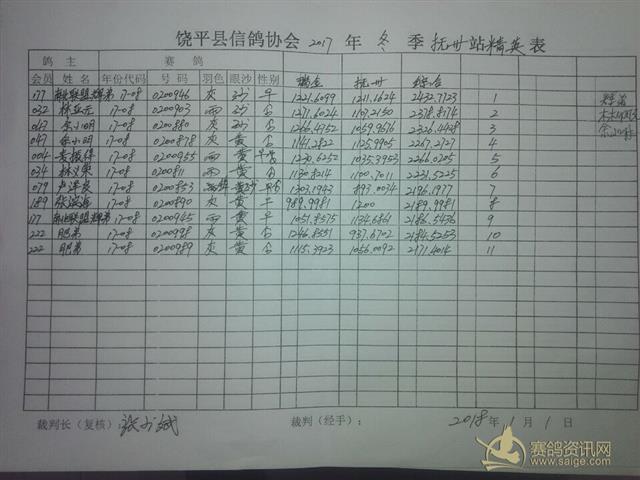 饶平县信鸽协会 2017 年 冬 季 抚州站精英表
鸽 主 赛 鸽
会员 姓 名 年份代码 号 码 羽色 眼沙 性别 瑞金 抚州 综合
177 17-08 0200946 灰 沙 1221.6099 1211.1624 2432.7723 1
032 17-08 0200903 雨 沙 1271.6024 1107.2150 2378.8174 2
047 余小明 17-08 0200880 灰 沙 1266.4752 1059.9676 2326.4428 3
047 余小明 17-08 0200878 灰 黄 1141.2822 1125.9905 2267.2727 4
004 17-08 0200955 雨 黄 1230.6252 1035.3953 2266.0205 5
034 林义荣 17-08 0200811 雨 黄 1130.8214 1100.7011 2231.5225 6
079 17-08 0200853 黄沙 1303.1943 893.0034 2196.1977 7
189 17-08 0200890 灰 黄 989.9981 1200 2189.9981 8
177 17-08 0200945 雨 黄 1051.8575 1134.6861 2186.5436 9
222 肥弟 17-08 0200998 灰 黄 1246.8551 937.6702 2184.5253 10
222 肥弟 17-08 0200989 灰 黄 1115.3923 1056.0092 2171.4014 11
裁判长（复核）： 裁判（经手）： 2018 年 1 月 1 日
赛鸽资讯网
www.saige.com